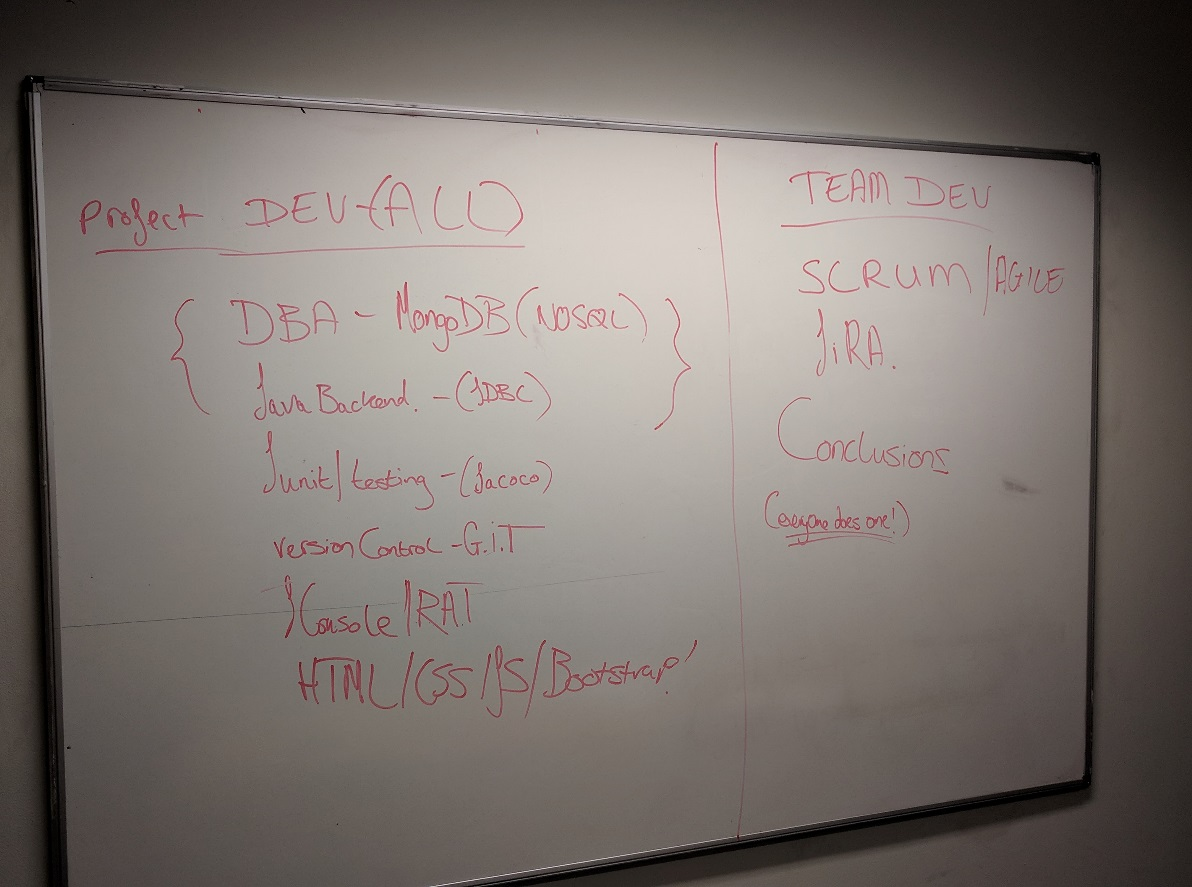 Project DEV-(ALL)
DBA - MongoDB (NOSQL)
Java Backend. - (JDBC)
Junit/testing - (Jacoco)
version Control - G.i.T
JConsole/RAT
HTML/CSS/JS/Bootstrap
TEAM DEV
SCRUM/AGILE
JiRA.
Conclusions
(everyone does one!)